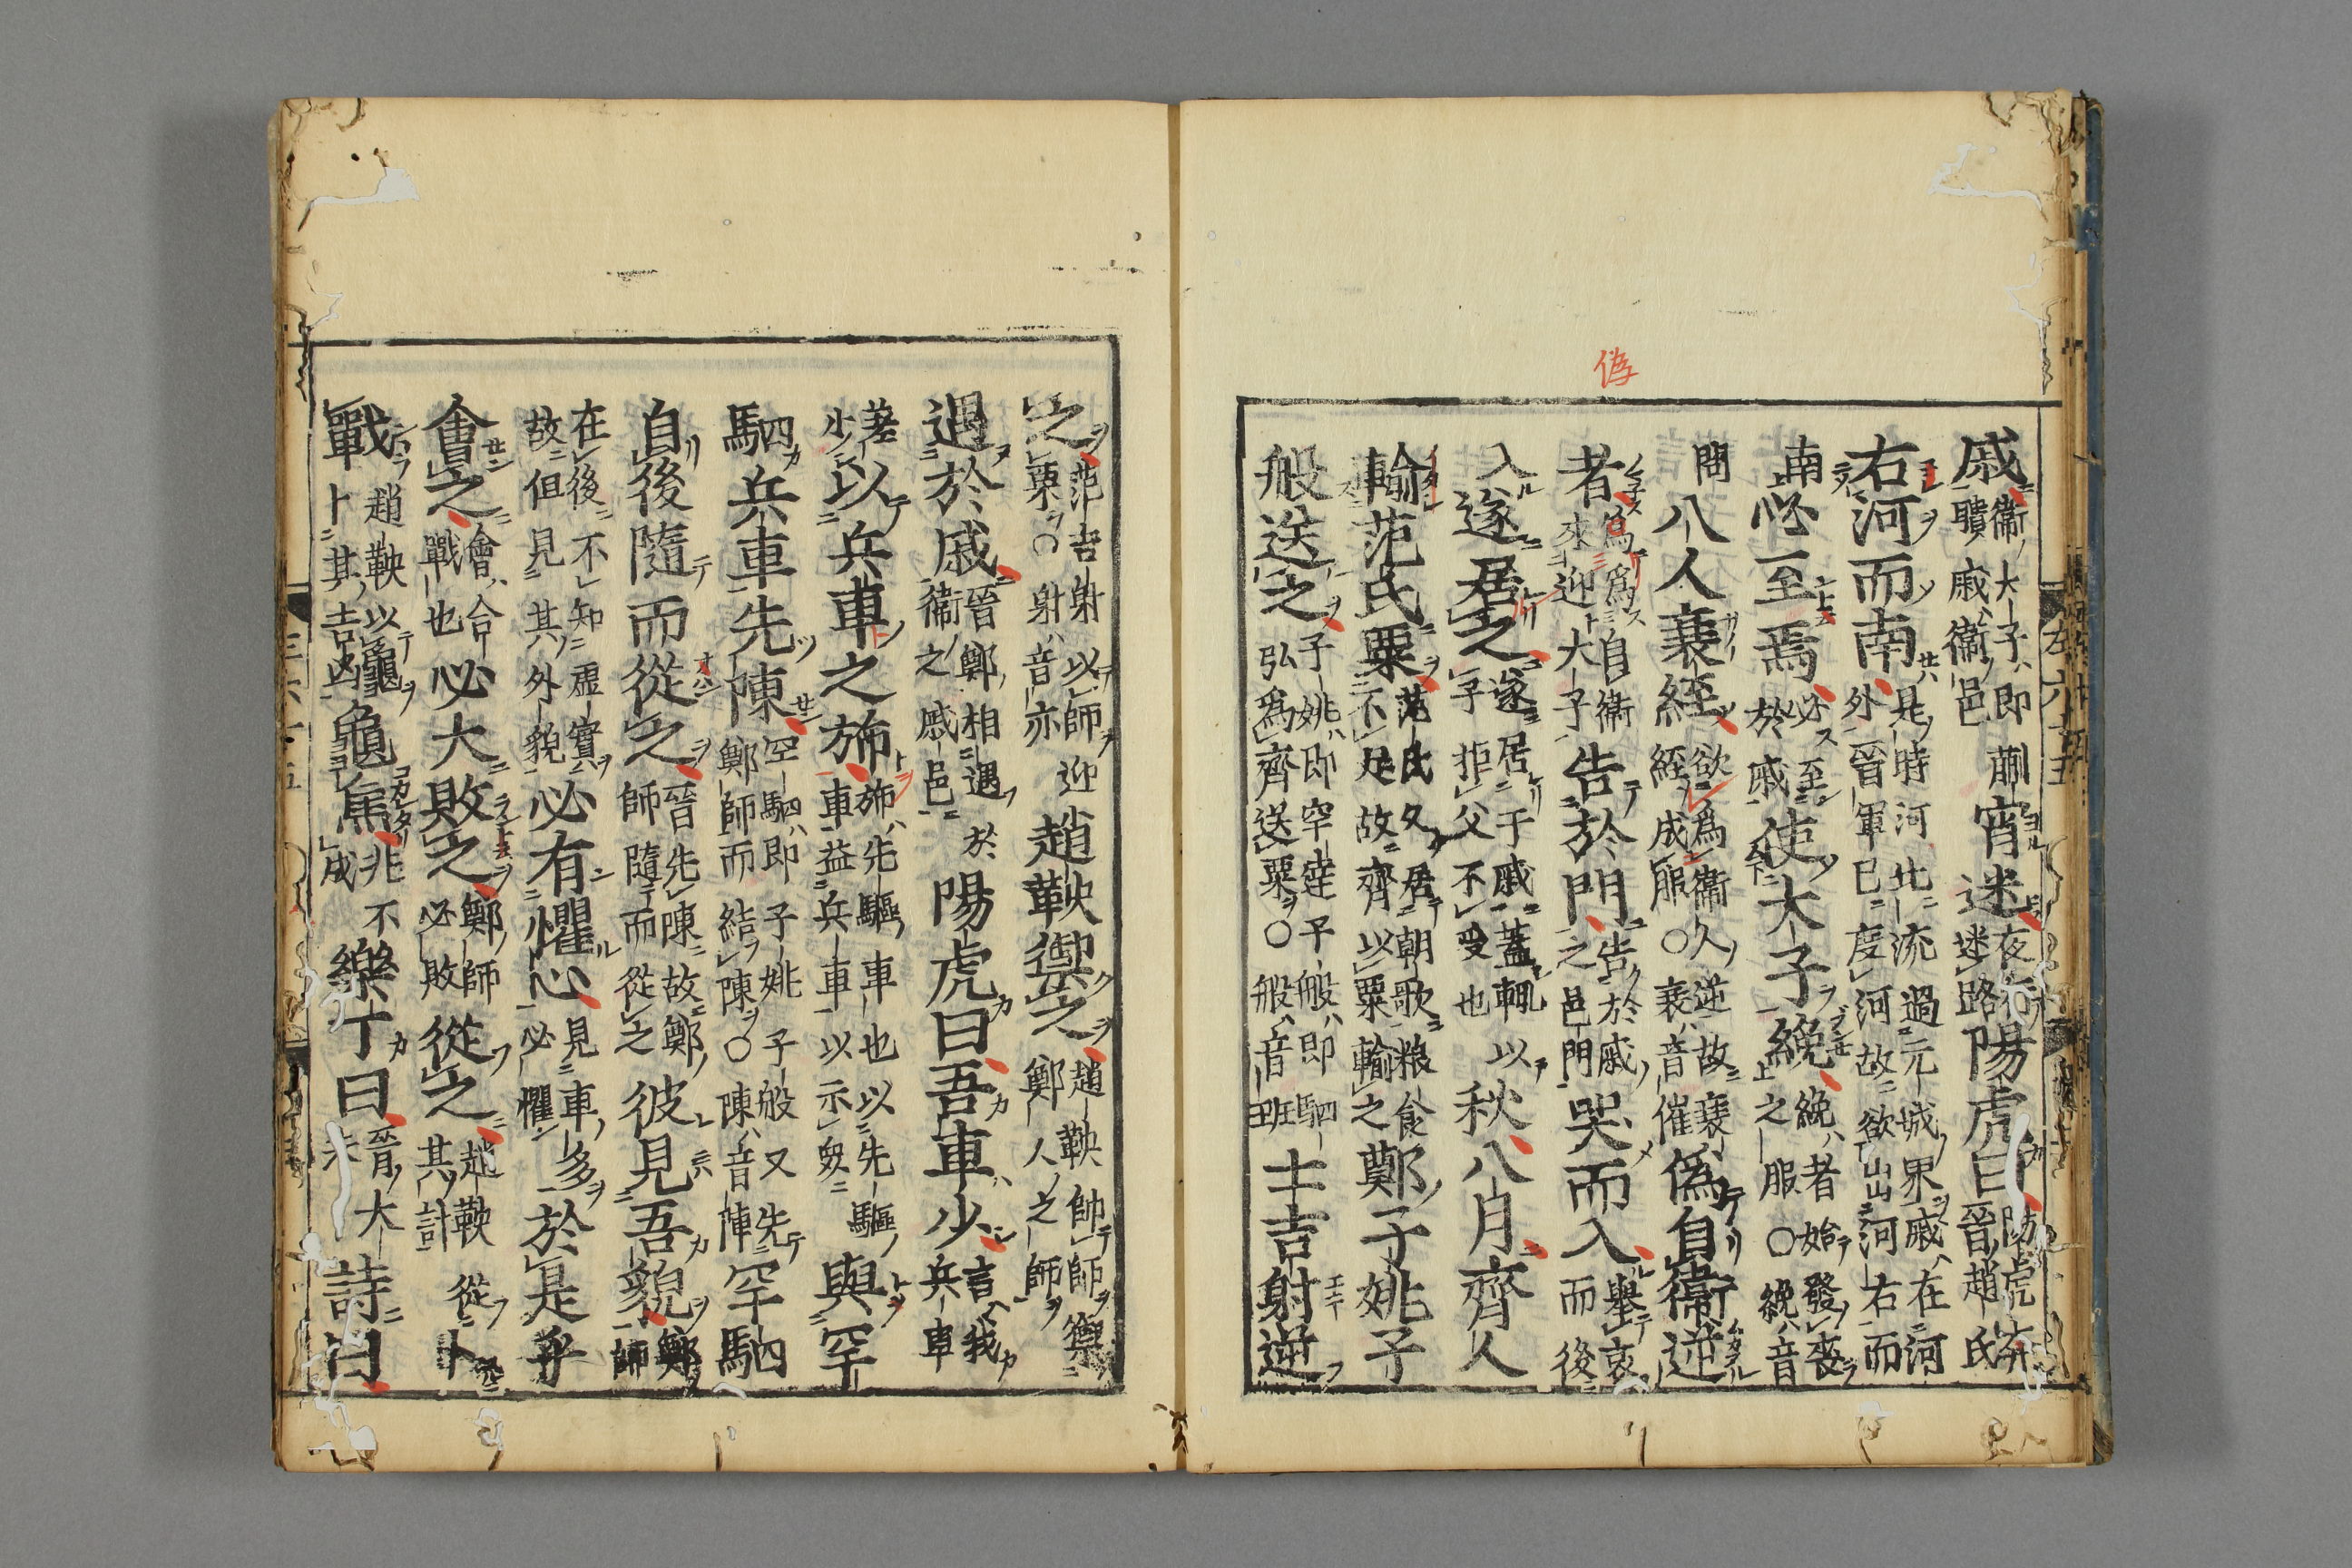 偽
戚衞大子即蒯聵戚衞邑宵迷夜行迷路陽虎曰陽虎奔晉趙氏
右河而南是時河北流過元城界戚在河外晉軍已度河故欲出河右而
南必至焉必至於戚使大子絻絻者始發喪之服○絻音
問八人衰絰欲爲衞人逆故衰絰成服○衰音催僞自衞逆
者爲爲自衞來迎大子告於門告於戚之邑門哭而入舉哀而後
入遂居之遂居于戚蓋輒以子拒父不受也秋八月齊人
輸范氏粟范氏久居朝歌粮食不足故齊以粟輸之鄭子姚子
般送之子姚即罕達子般即駟弘爲齊送粟○般音班士吉射逆
之范吉射以師迎粟○射音亦趙鞅禦之趙鞅帥師禦鄭人之師
遇於戚晉鄭相遇於衞之戚邑陽虎曰吾車少言我兵車
差少以兵車之旆旆先驅車也以先驅車益兵車以示衆與罕
駟兵車先陳罕駟即子姚子般又先鄭師而結陳○陳音陣罕駟
自後隨而從之晉先陳故鄭師隨而從之彼見吾貌鄭師
在後不知虛實故但見其外貌必有懼心見車多必懼於是乎
會之會合戰也必大敗之鄭師必敗從之趙鞅從其計卜
戰趙鞅以龜卜其吉凶龜焦兆不成樂丁曰晉大夫詩曰